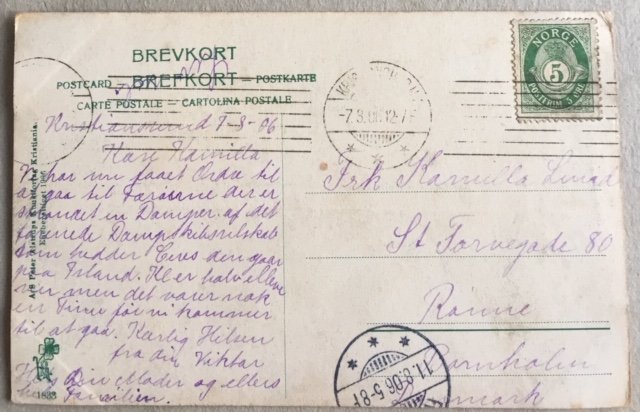 BREVKORT
POSTCARD — BREFKORT — POSTKARTE
CARTE POSTALE — CARTOLINA POSTALE
NORGE
5
POSTFRIM
-7.3.06.12-
Kristianssund 7-3-06
Kære Kamilla
Vi har nu faaet Ordre til
at gaa til Færøerne der er
strandet en Damper af det
forenede Dampskibsselskab
som hedder Ceres den gaar
paa Island. Kl er halv elleve
nu men det varer nok
en Time før vi kommer
til at gaa. Kærlig Hilsen
fra din Viktor
Din Moder og ellers
Familien.
Frk Kamilla Lund
St Torvegade 80
Rønne
Bornholm
Danmark
11.3.06.5-8F
Eneberettiget
Kristiania
1833